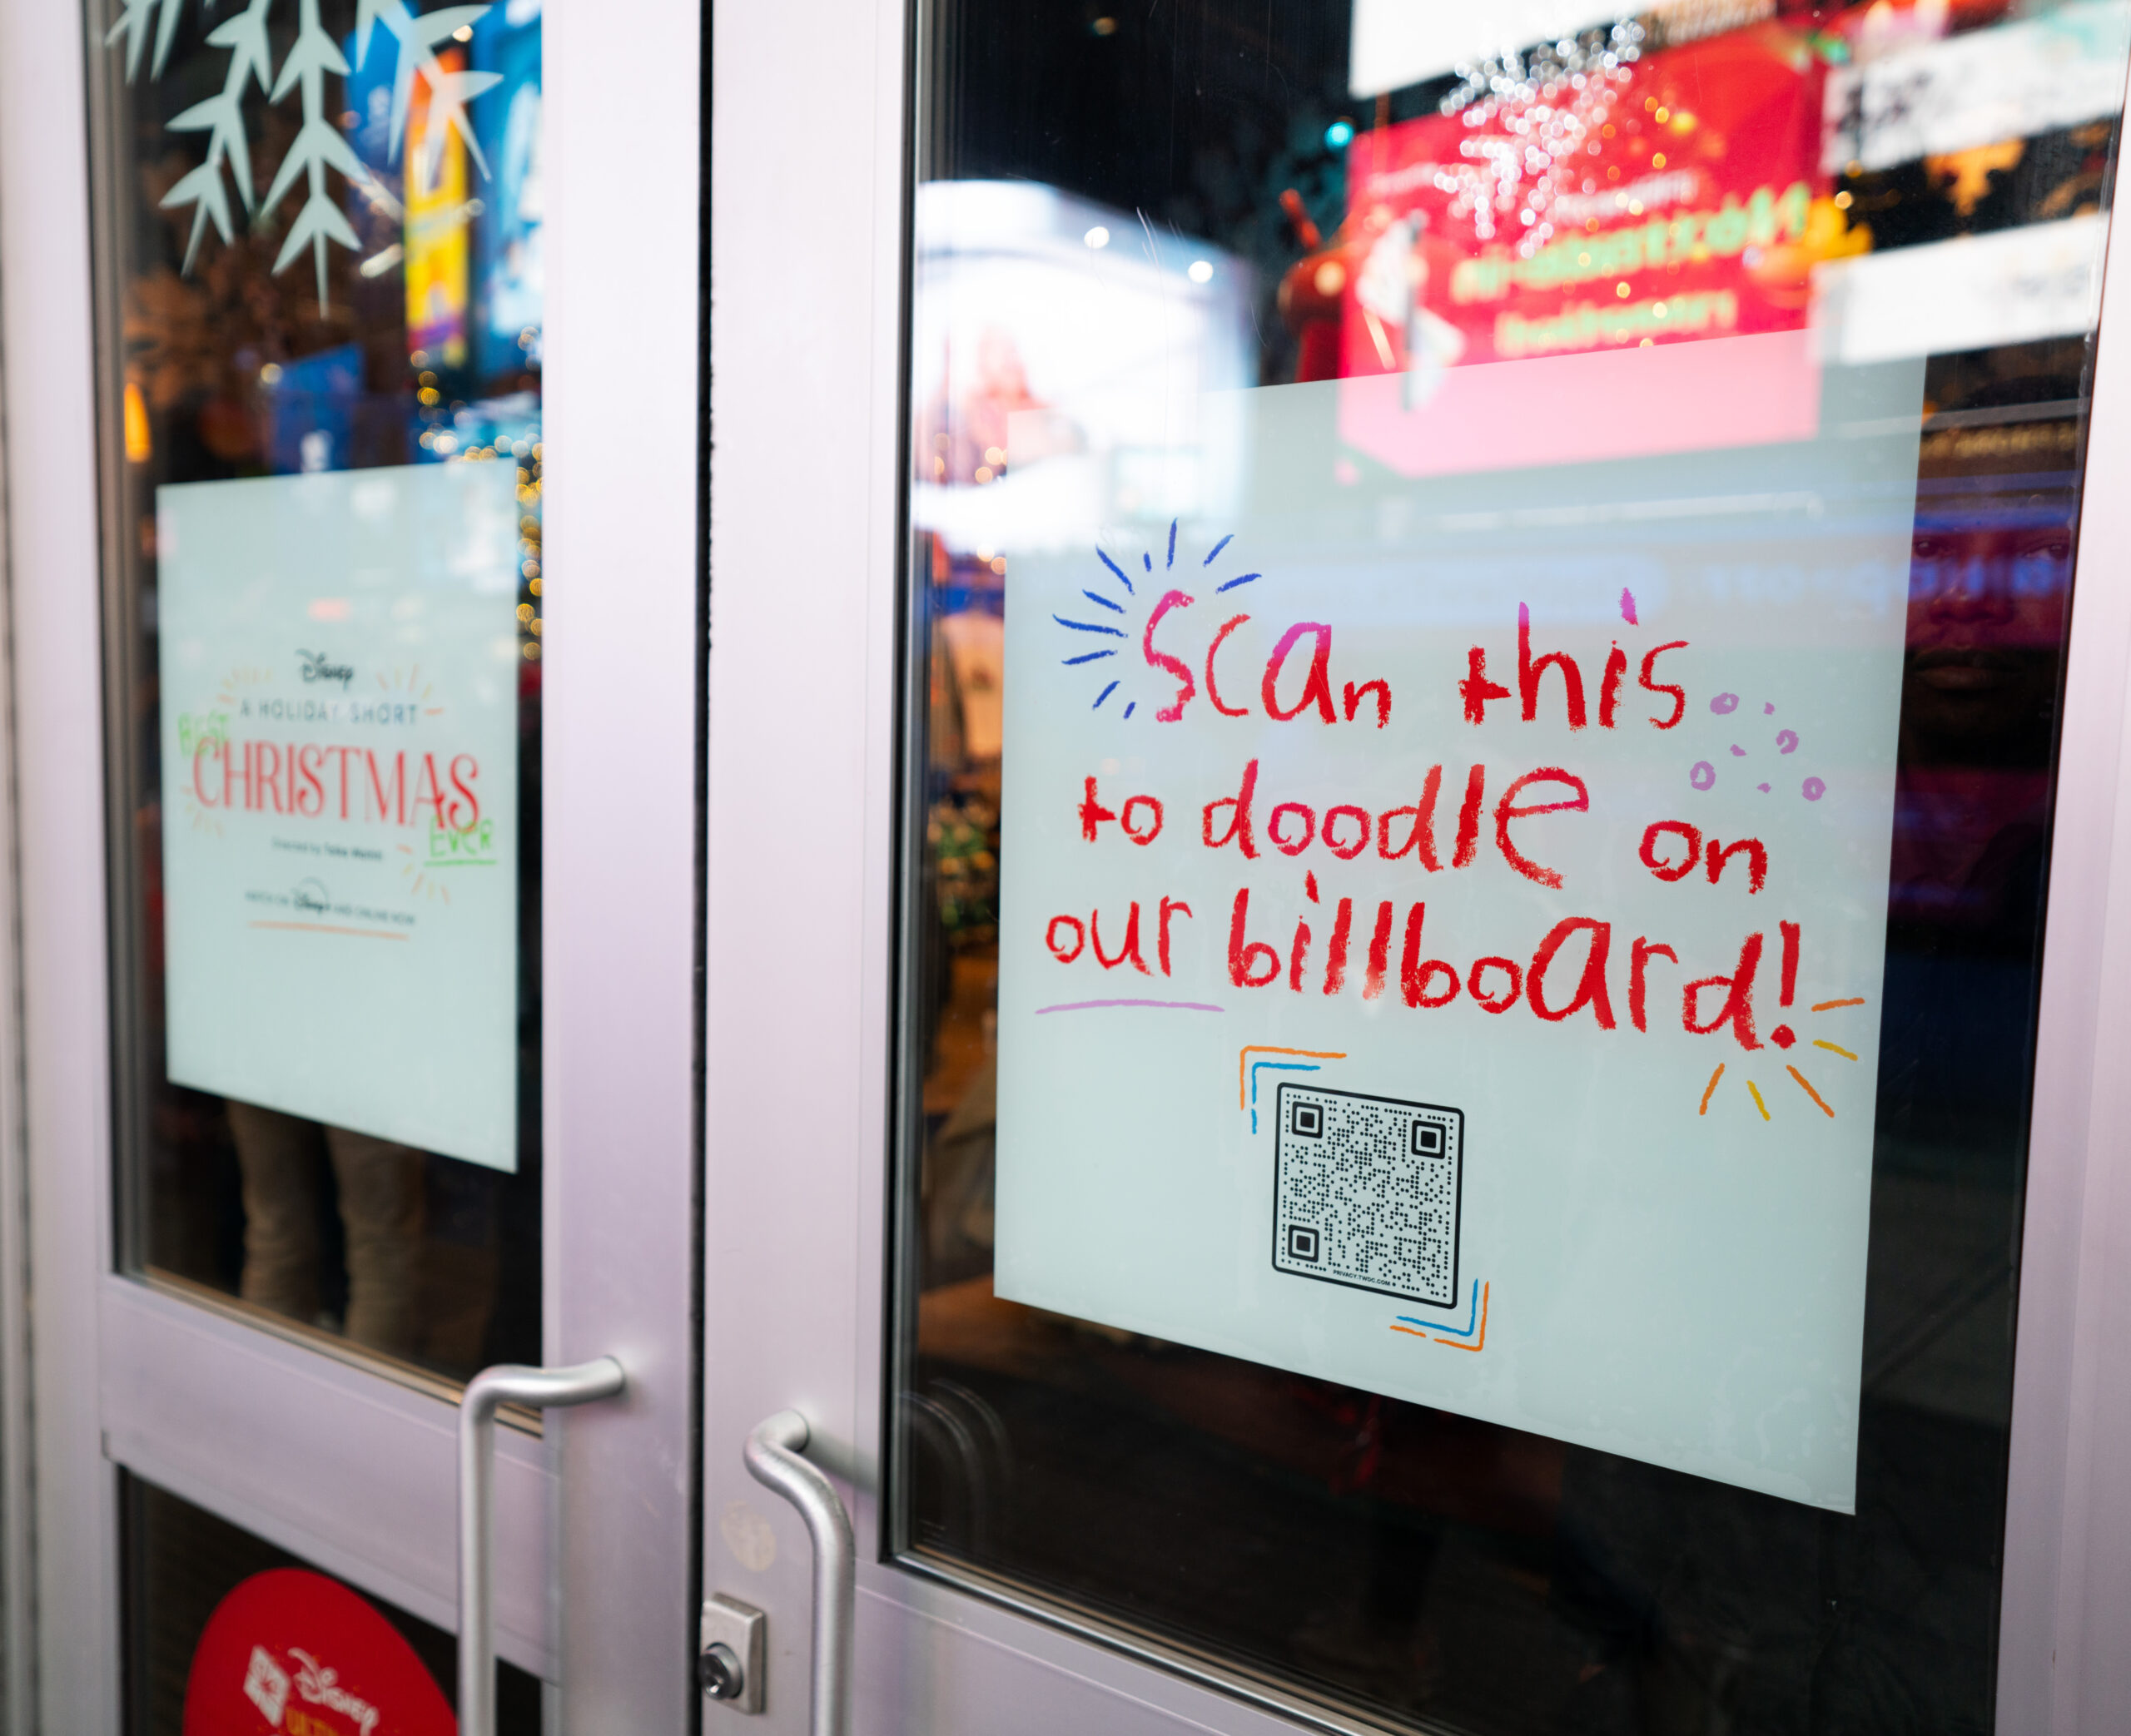 Disney
A HOLIDAY SHORT
BEST
CHRISTMAS
EVER
Directed by Taika Waititi
WATCH ON Disney+ AND ONLINE NOW
Scan this
to doodle on
our billboard!
PRIVACY.TWDC.COM
Disney